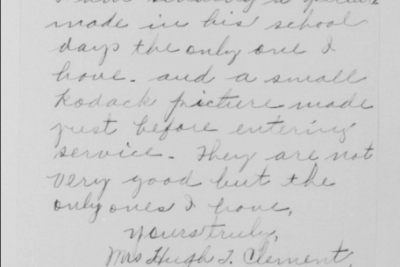 I am sending a picture
made in his school
days the only one I
have. and a small
Kodack picture made
just before entering
service. They are not
very good but the
only ones I have.
Yours truly,
Mrs Hugh T. Clement.